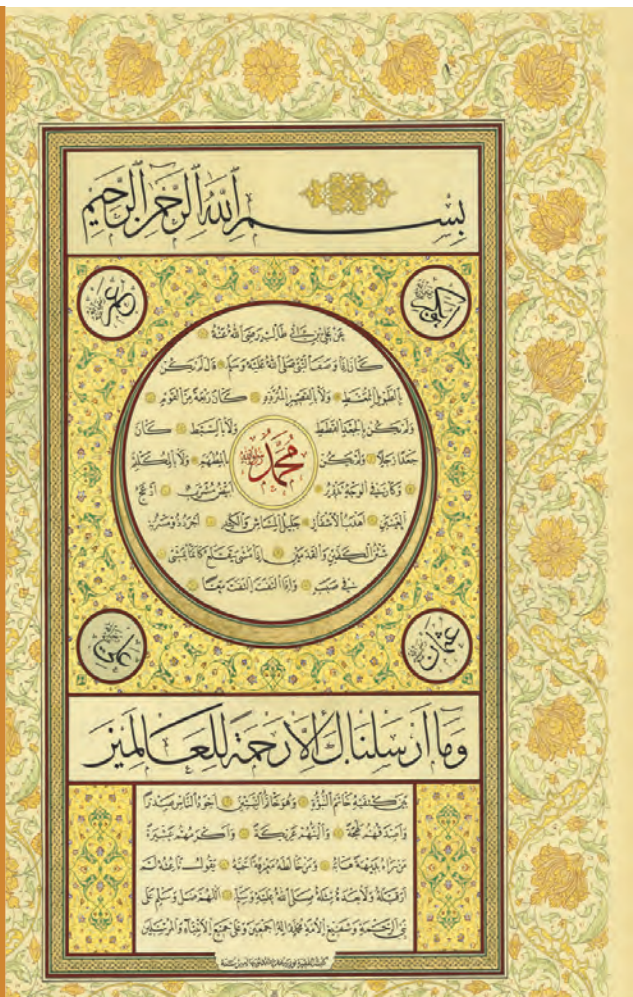 بِسْمِ ٱللهِ ٱلرَّحْمٰنِ ٱلرَّحِيمِ
ابو بكر
عمر
عَنْ عَلِيِّ بْنِ اَبِي طَالِبٍ رَضِيَ اللهُ عَنْهُ
كَانَ اِذَا وَصَفَ النَّبِيَّ صَلَّى اللهُ عَلَيْهِ وَسَلَّمَ قَالَ لَمْ يَكُنْ
بِالطَّوِيلِ الْمُمَّغِطِ وَلَا بِالْقَصِيرِ الْمُتَرَدِّدِ كَانَ رَبْعَةً مِنَ الْقَوْمِ
وَلَمْ يَكُنْ بِالْجَعْدِ الْقَطَطِ وَلَا بِالسَّبِطِ كَانَ
جَعْدًا رَجِلًا وَلَمْ يَكُنْ بِالْمُطَهَّمِ وَلَا بِالْمُكَلْثَمِ
مُحَمَّدٌ
وَكَانَ فِي الْوَجْهِ تَدْوِيرٌ اَبْيَضُ مُشْرَبٌ اَدْعَجُ
الْعَيْنَيْنِ اَهْدَبُ الْاَشْفَارِ جَلِيلُ الْمُشَاشِ وَالْكَتَدِ اَجْرَدُ ذُو مَسْرُبَةٍ
شَثْنُ الْكَفَّيْنِ وَالْقَدَمَيْنِ اِذَا مَشَى يَتَقَلَّعُ كَاَنَّمَا يَمْشِي
فِي صَبَبٍ وَاِذَا الْتَفَتَ الْتَفَتَ مَعًا
عثمان
علي
وَمَا اَرْسَلْنَاكَ اِلَّا رَحْمَةً لِلْعَالَمِينَ
بَيْنَ كَتِفَيْهِ خَاتَمُ النُّبُوَّةِ وَهُوَ خَاتَمُ النَّبِيِّينَ اَجْوَدُ النَّاسِ صَدْرًا
وَاَصْدَقُهُمْ لَهْجَةً وَاَلْيَنُهُمْ عَرِيكَةً وَاَكْرَمُهُمْ عَشِيرَةً
مَنْ رَاٰهُ بَدِيهَةً هَابَهُ وَمَنْ خَالَطَهُ مَعْرِفَةً اَحَبَّهُ يَقُولُ نَاعِتُهُ لَمْ
اَرَ قَبْلَهُ وَلَا بَعْدَهُ مِثْلَهُ صَلَّى اللهُ عَلَيْهِ وَسَلَّمَ اَللّٰهُمَّ صَلِّ وَسَلِّمْ عَلَى
نَبِيِّ الرَّحْمَةِ وَشَفِيعِ الْاُمَّةِ مُحَمَّدٍ وَاٰلِهِ اَجْمَعِينَ وَعَلَى جَمِيعِ الْاَنْبِيَاءِ وَالْمُرْسَلِينَ